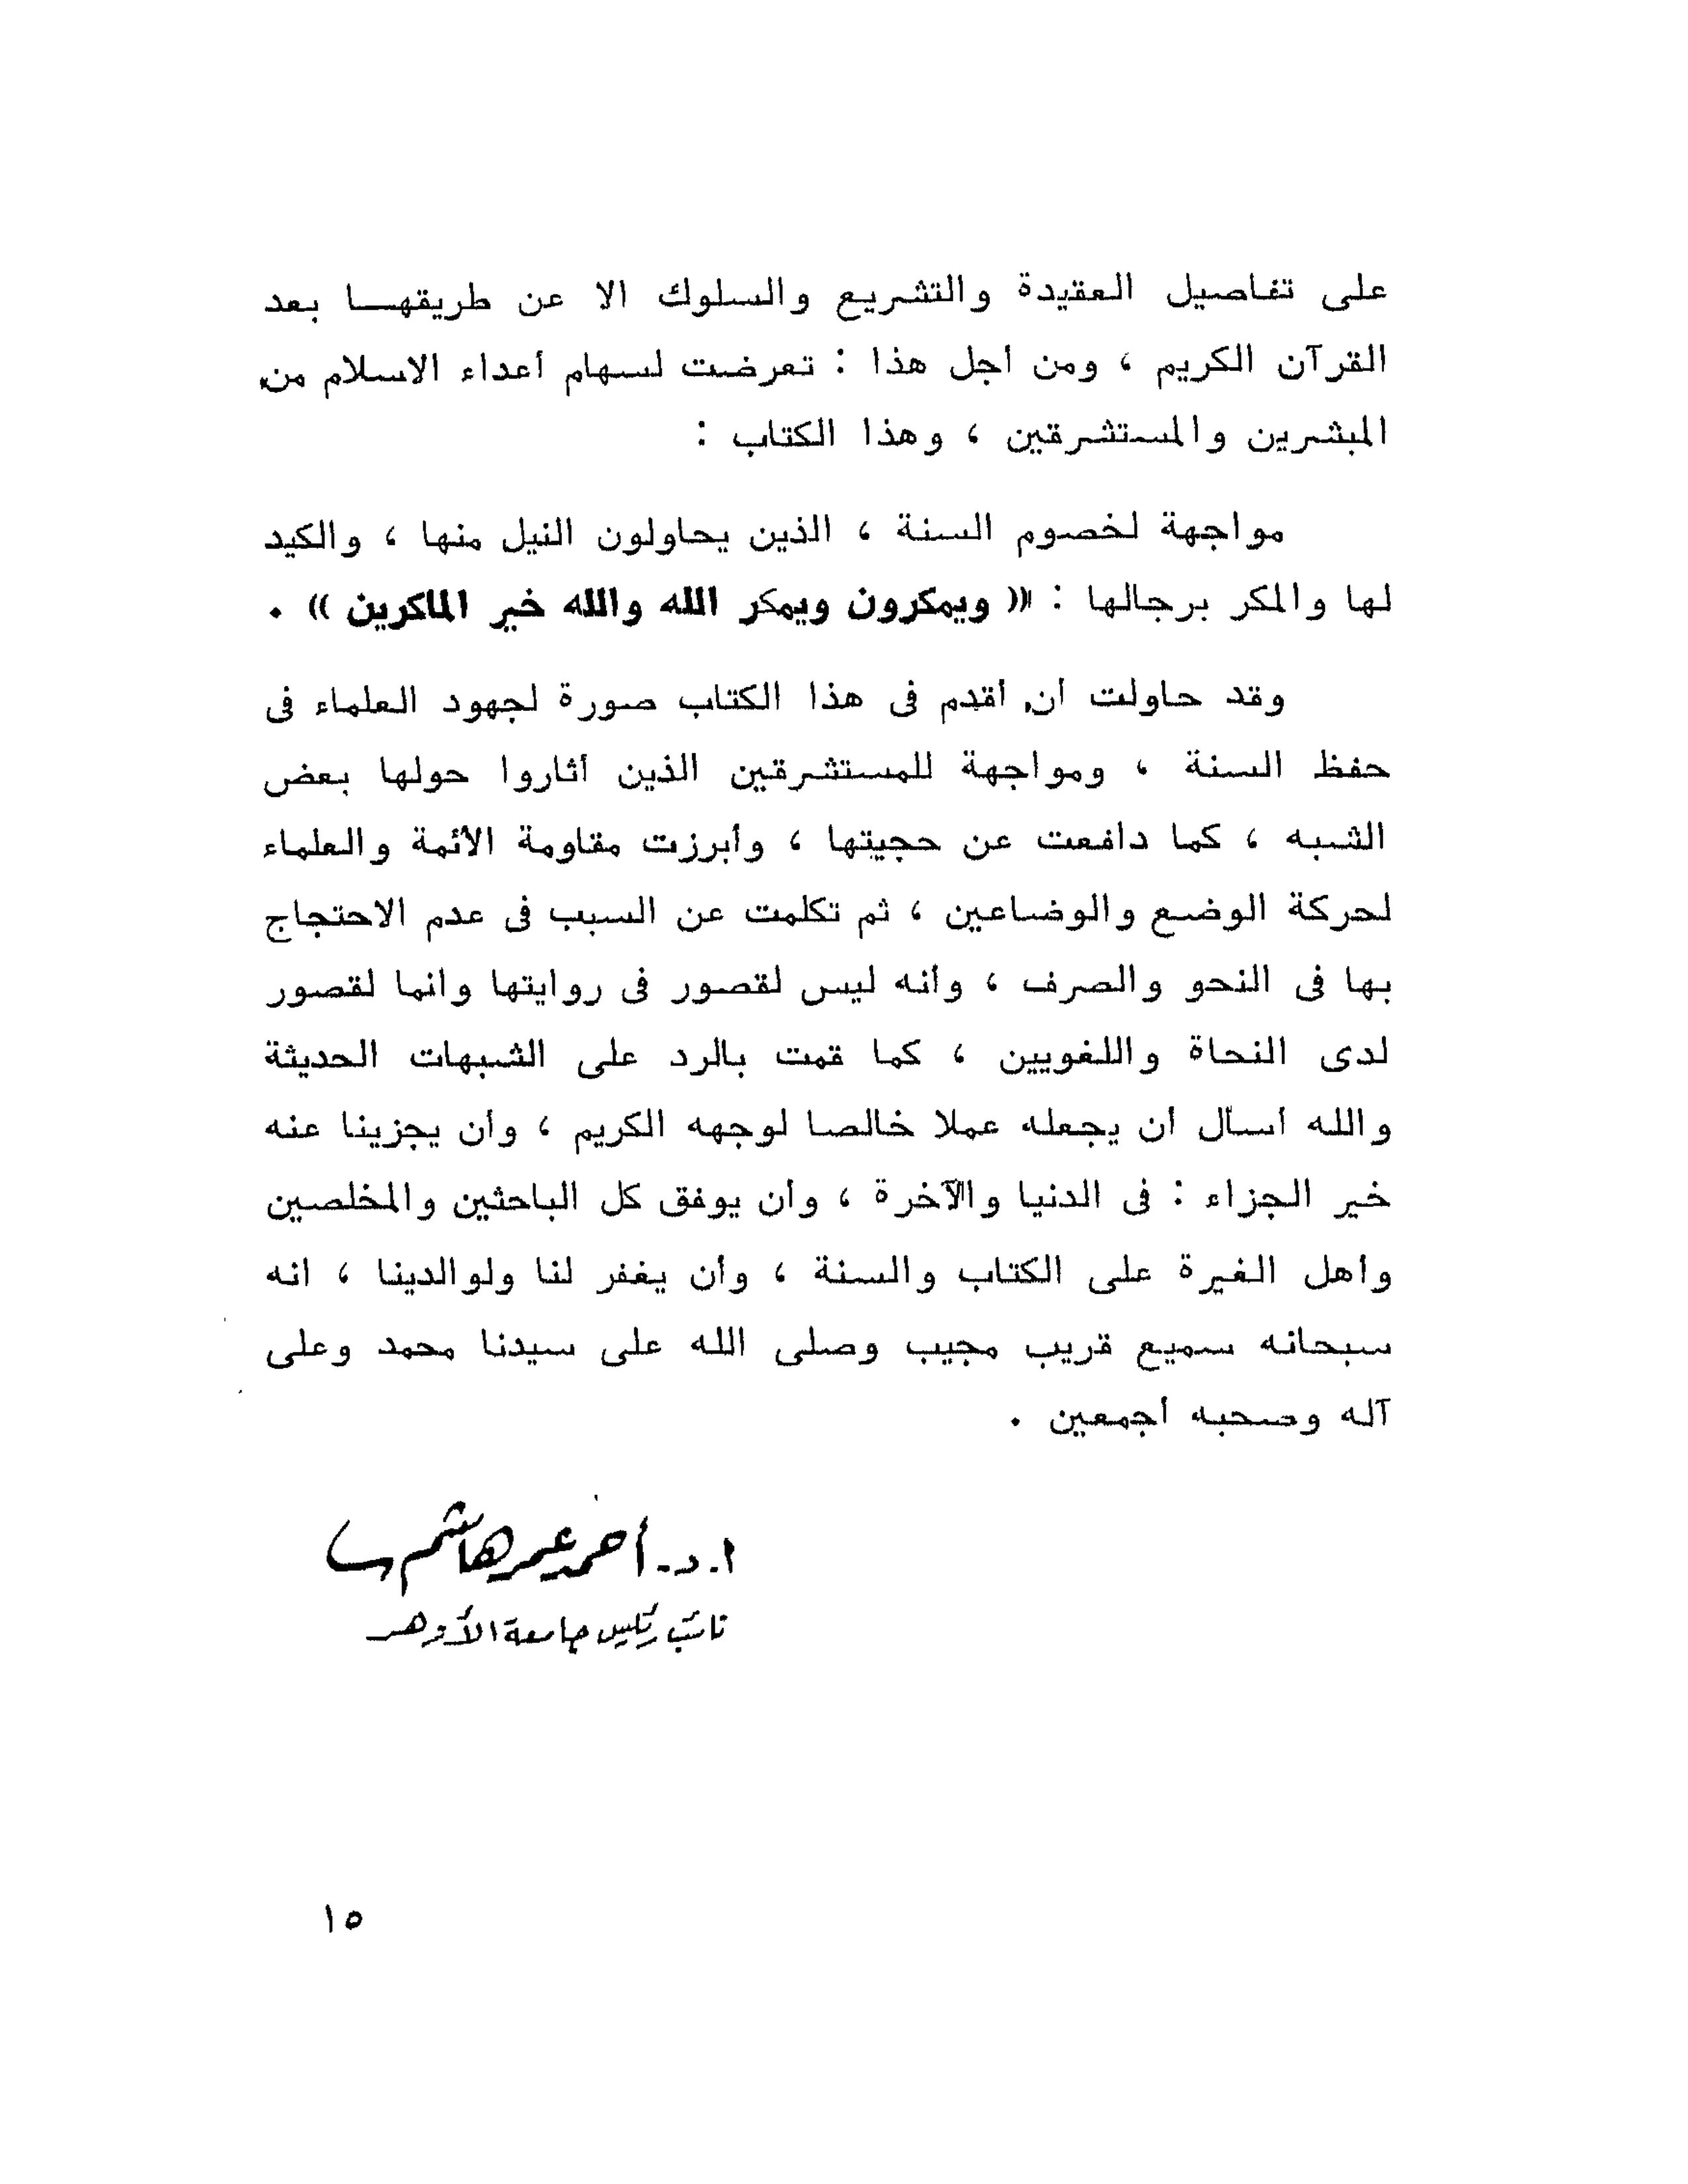 على تفاصيل العقيدة والتشريع والسلوك الا عن طريقهـــا بعد
القرآن الكريم ، ومن أجل هذا : تعرضت لسهام أعداء الاسلام من
المبشرين والمستشرقين ، وهذا الكتاب :
مواجهة لخصوم السنة ، الذين يحاولون النيل منها ، والكيد
لها والمكر برجالها : (( ويمكرون ويمكر الله والله خير الماكرين )) .
وقد حاولت أن أقدم فى هذا الكتاب صورة لجهود العلماء فى
حفظ السنة ، ومواجهة للمستشرقين الذين أثاروا حولها بعض
الشبه ، كما دافعت عن حجيتها ، وأبرزت مقاومة الأئمة والعلماء
لحركة الوضع والوضاعين ، ثم تكلمت عن السبب فى عدم الاحتجاج
بها فى النحو والصرف ، وأنه ليس لقصور فى روايتها وانما لقصور
لدى النحاة واللغويين ، كما قمت بالرد على الشبهات الحديثة
والله أسأل أن يجعله عملا خالصا لوجهه الكريم ، وأن يجزينا عنه
خير الجزاء : فى الدنيا والآخرة ، وأن يوفق كل الباحثين والمخلصين
وأهل الغيرة على الكتاب والسنة ، وأن يغفر لنا ولوالدينا ، انه
سبحانه سميع قريب مجيب وصلى الله على سيدنا محمد وعلى
آله وصحبه أجمعين .
ا. د. أحمد عمر هاشم
نائب رئيس جامعة الأزهر
١٥